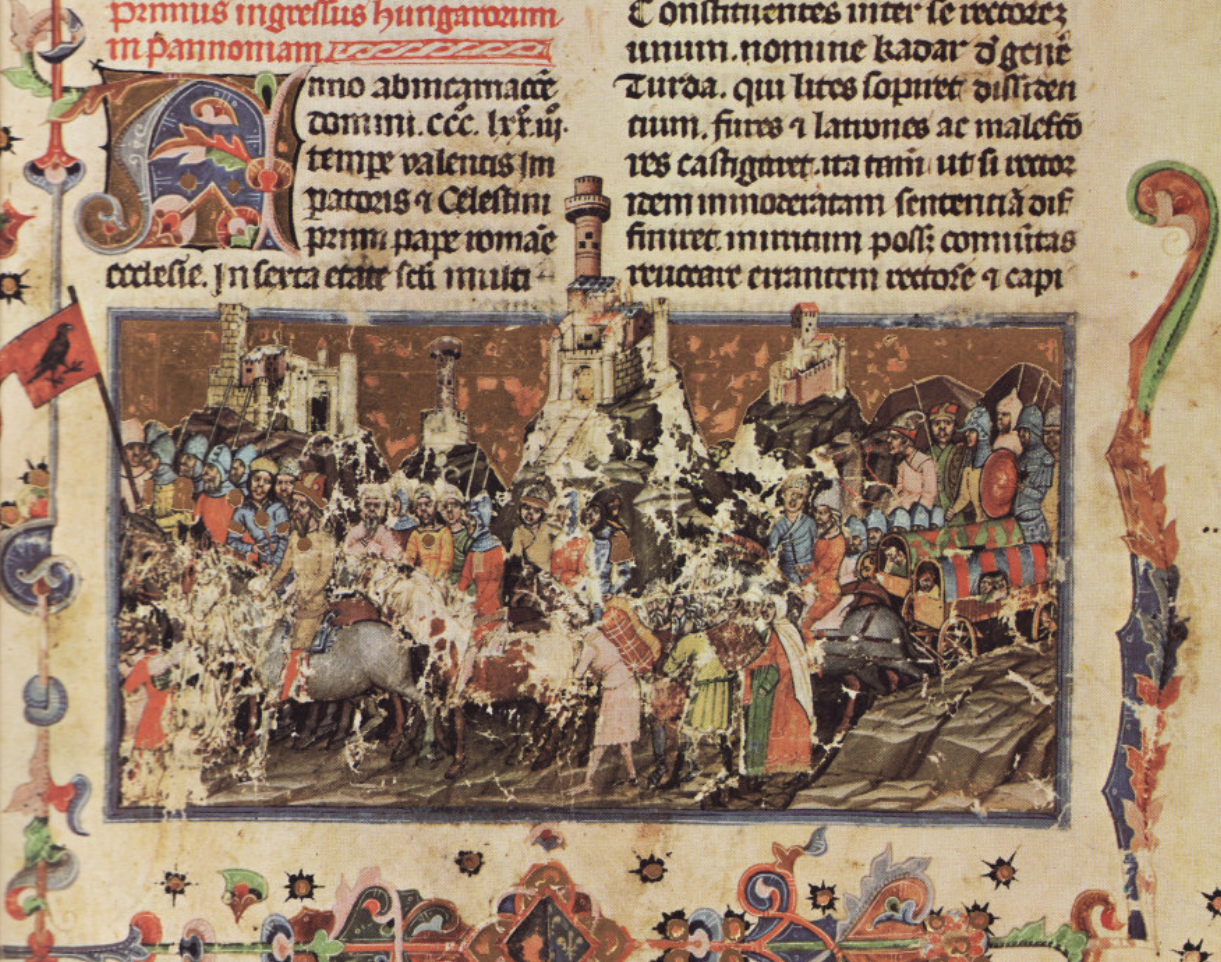 primus ingressus hungarorum
in pannoniam
Anno ab incarnacōe
domini. ccc. lxx.iii.
tempe valentis Im
patoris ⁊ Celestini
primi pape romāe
ecclesie. In serta etate scli multi
Constituentes inter se rectorez
unum. nomine kadar d' genē
Turda. qui lites sopiret dissiden
cium. fures ⁊ latrones ac malefcō
res castigaret. ita tamē ut si rector
idem inmoderatam sentenciā dif
finiret. inritum poss: comūitas
reuocare errantem rectorē ⁊ capi